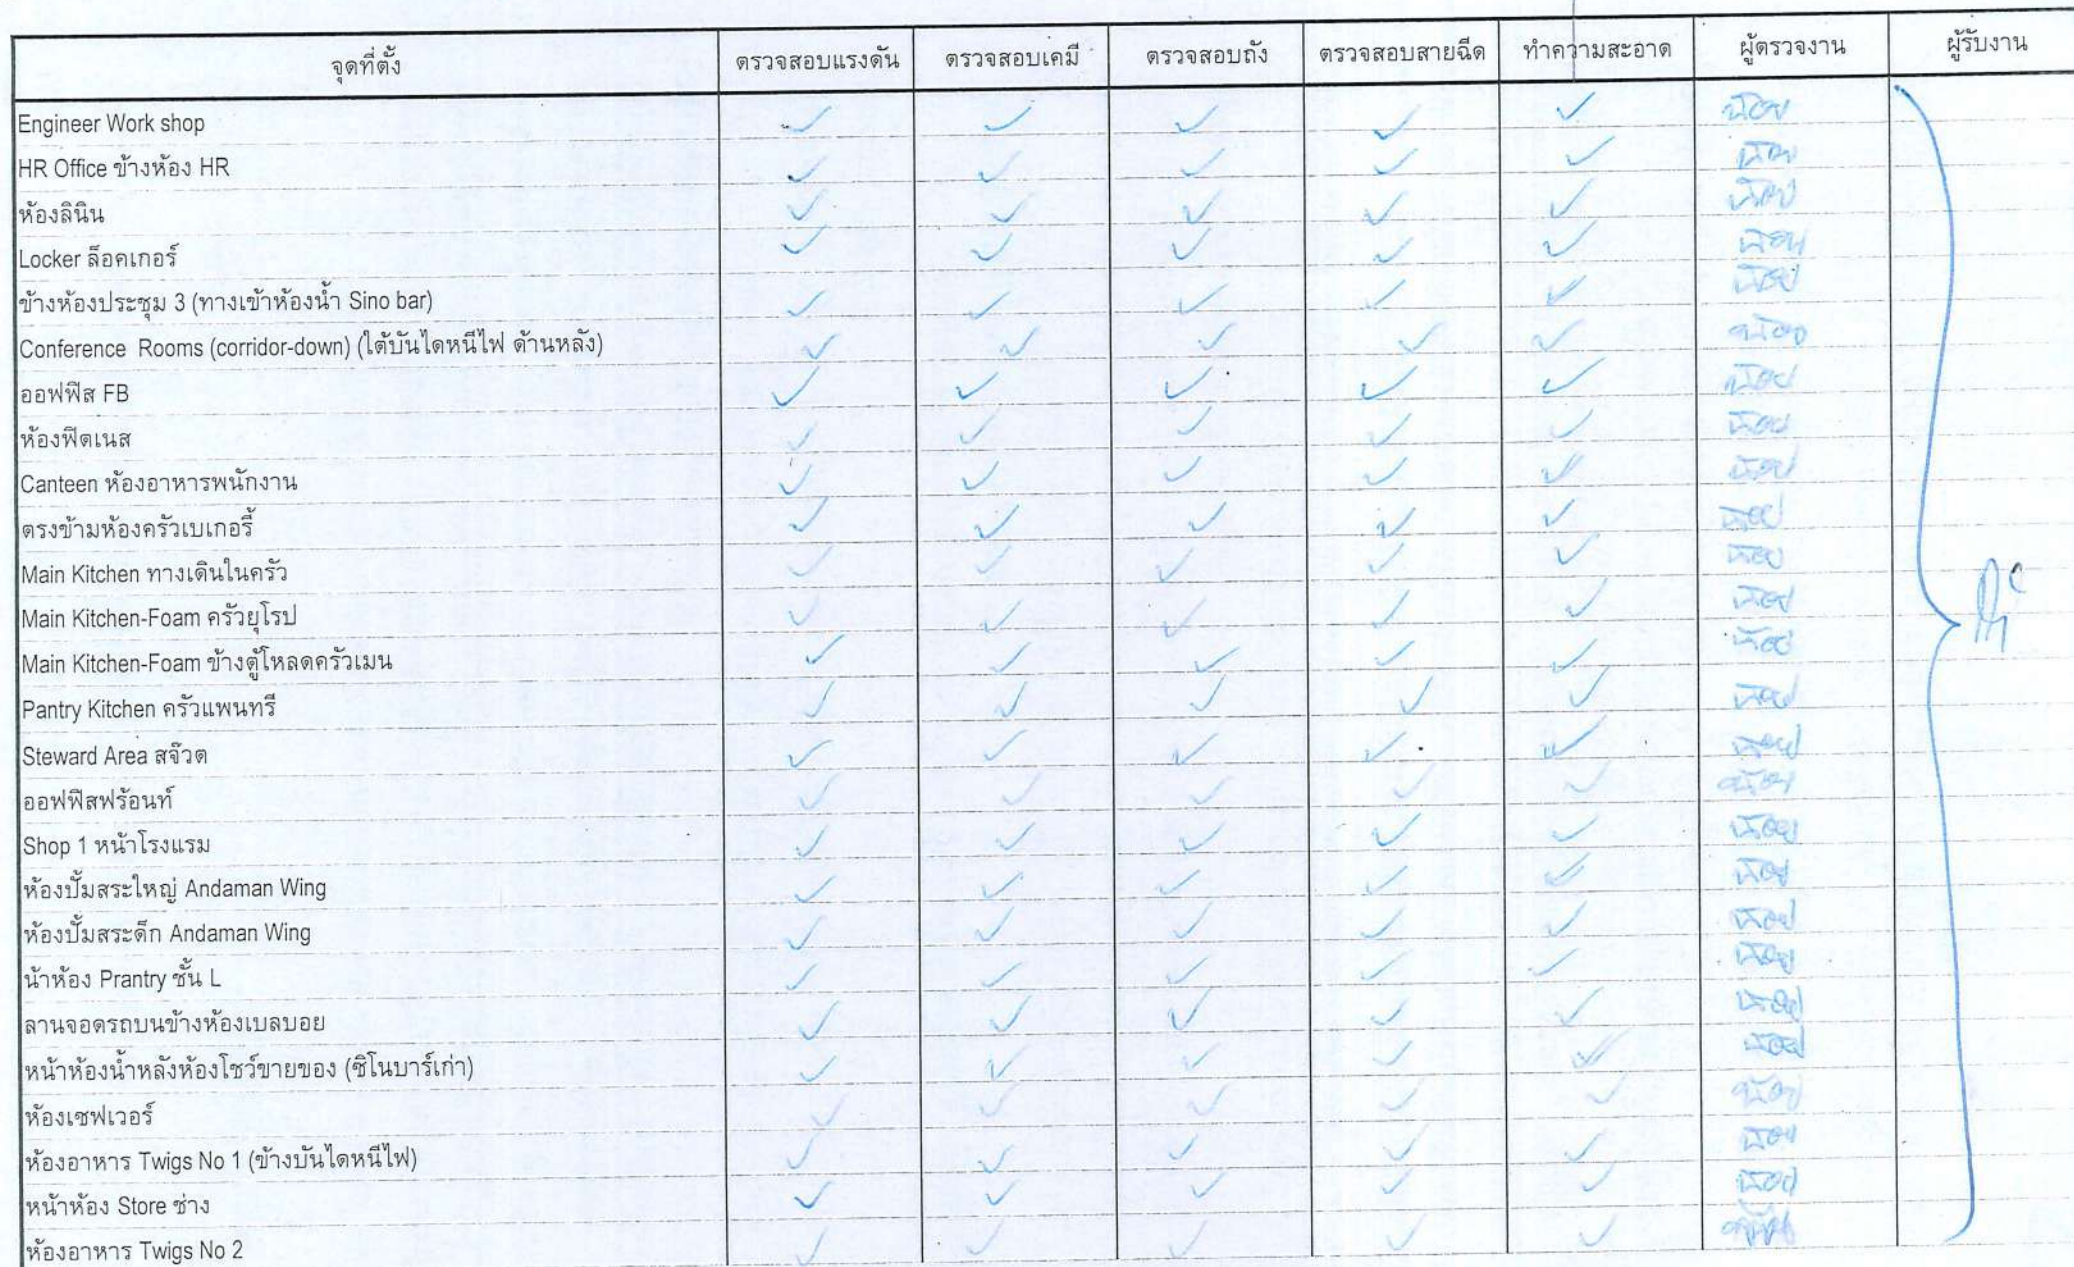 จุดที่ตั้ง ตรวจสอบแรงดัน ตรวจสอบเคมี ตรวจสอบถัง ตรวจสอบสายฉีด ทำความสะอาด ผู้ตรวจงาน ผู้รับงาน
Engineer Work shop ✓ ✓ ✓ ✓ ✓ น้อย
HR Office ข้างห้อง HR ✓ ✓ ✓ ✓ ✓ น้อย
ห้องลินิน ✓ ✓ ✓ ✓ ✓ น้อย
Locker ล็อคเกอร์ ✓ ✓ ✓ ✓ ✓ น้อย
ข้างห้องประชุม 3 (ทางเข้าห้องน้ำ Sino bar) ✓ ✓ ✓ ✓ ✓ น้อย
Conference Rooms (corridor-down) (ใต้บันไดหนีไฟ ด้านหลัง) ✓ ✓ ✓ ✓ ✓ น้อย
ออฟฟิส FB ✓ ✓ ✓ ✓ ✓ น้อย
ห้องฟิตเนส ✓ ✓ ✓ ✓ ✓ น้อย
Canteen ห้องอาหารพนักงาน ✓ ✓ ✓ ✓ ✓ น้อย
ตรงข้ามห้องครัวเบเกอรี้ ✓ ✓ ✓ ✓ ✓ น้อย
Main Kitchen ทางเดินในครัว ✓ ✓ ✓ ✓ ✓ น้อย
Main Kitchen-Foam ครัวยุโรป ✓ ✓ ✓ ✓ ✓ น้อย
Main Kitchen-Foam ข้างตู้โหลดครัวเมน ✓ ✓ ✓ ✓ ✓ น้อย
Pantry Kitchen ครัวแพนทรี ✓ ✓ ✓ ✓ ✓ น้อย
Steward Area สจ๊วต ✓ ✓ ✓ ✓ ✓ น้อย
ออฟฟิสฟร้อนท์ ✓ ✓ ✓ ✓ ✓ น้อย
Shop 1 หน้าโรงแรม ✓ ✓ ✓ ✓ ✓ น้อย
ห้องปั้มสระใหญ่ Andaman Wing ✓ ✓ ✓ ✓ ✓ น้อย
ห้องปั้มสระด็ก Andaman Wing ✓ ✓ ✓ ✓ ✓ น้อย
น้าห้อง Prantry ชั้น L ✓ ✓ ✓ ✓ ✓ น้อย
ลานจอดรถบนข้างห้องเบลบอย ✓ ✓ ✓ ✓ ✓ น้อย
หน้าห้องน้ำหลังห้องโชว์ขายของ (ซิโนบาร์เก่า) ✓ ✓ ✓ ✓ ✓ น้อย
ห้องเซฟเวอร์ ✓ ✓ ✓ ✓ ✓ น้อย
ห้องอาหาร Twigs No 1 (ข้างบันไดหนีไฟ) ✓ ✓ ✓ ✓ ✓ น้อย
หน้าห้อง Store ช่าง ✓ ✓ ✓ ✓ ✓ น้อย
ห้องอาหาร Twigs No 2 ✓ ✓ ✓ ✓ ✓